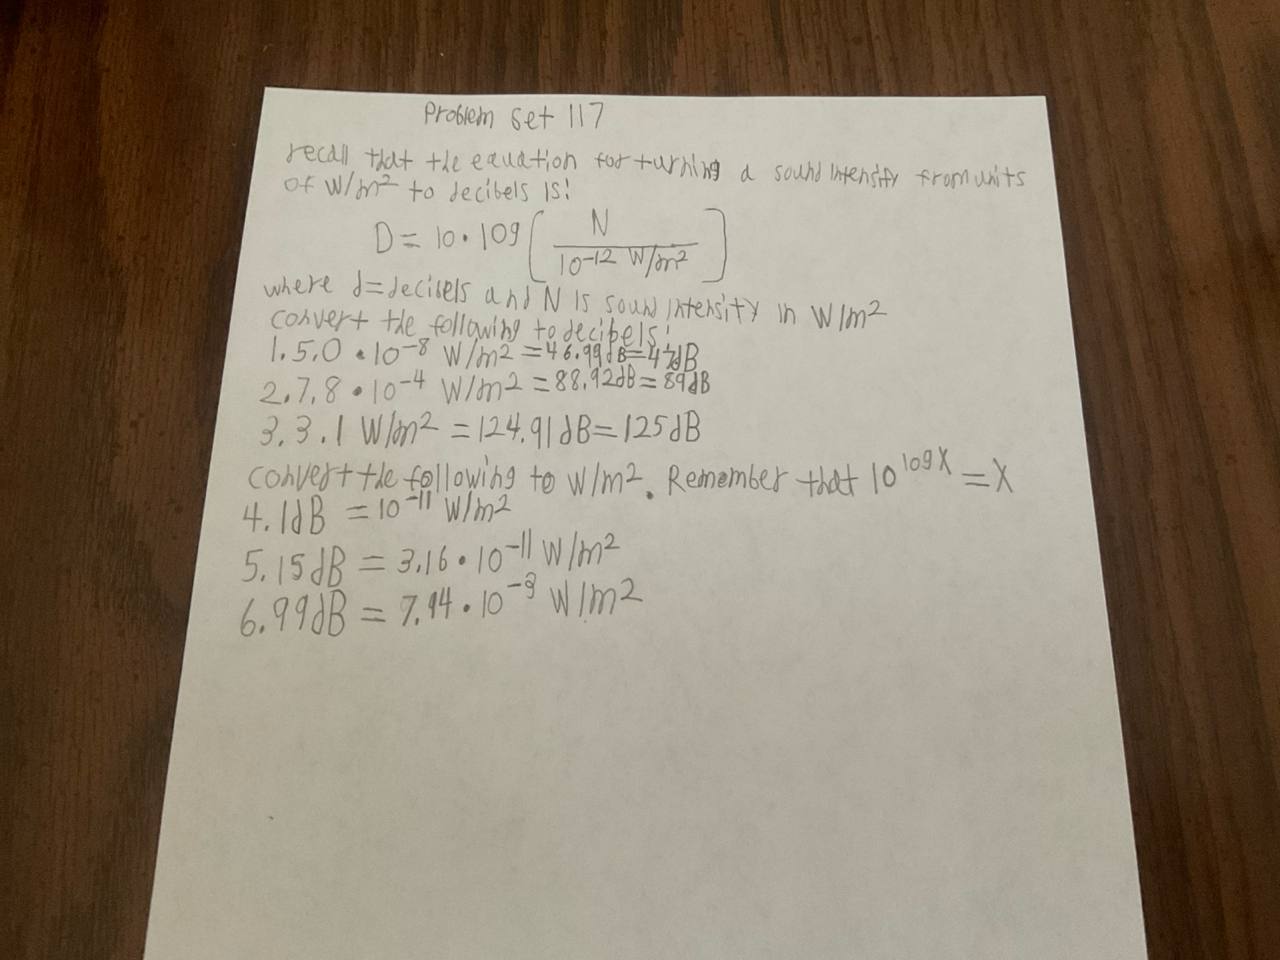 Problem Set 117
recall that the equation for turning a sound intensity from units
of W/m² to decibels is:
D = 10 • log [ N / 10⁻¹² W/m² ]
where d=decibels and N is sound intensity in W/m²
convert the following to decibels:
1. 5.0 • 10⁻⁸ W/m² = 46.99dB = 47dB
2. 7.8 • 10⁻⁴ W/m² = 88.92dB = 89dB
3. 3.1 W/m² = 124.91dB = 125dB
convert the following to W/m². Remember that 10^log X = X
4. 1dB = 10⁻¹¹ W/m²
5. 15dB = 3.16 • 10⁻¹¹ W/m²
6. 99dB = 7.94 • 10⁻³ W/m²